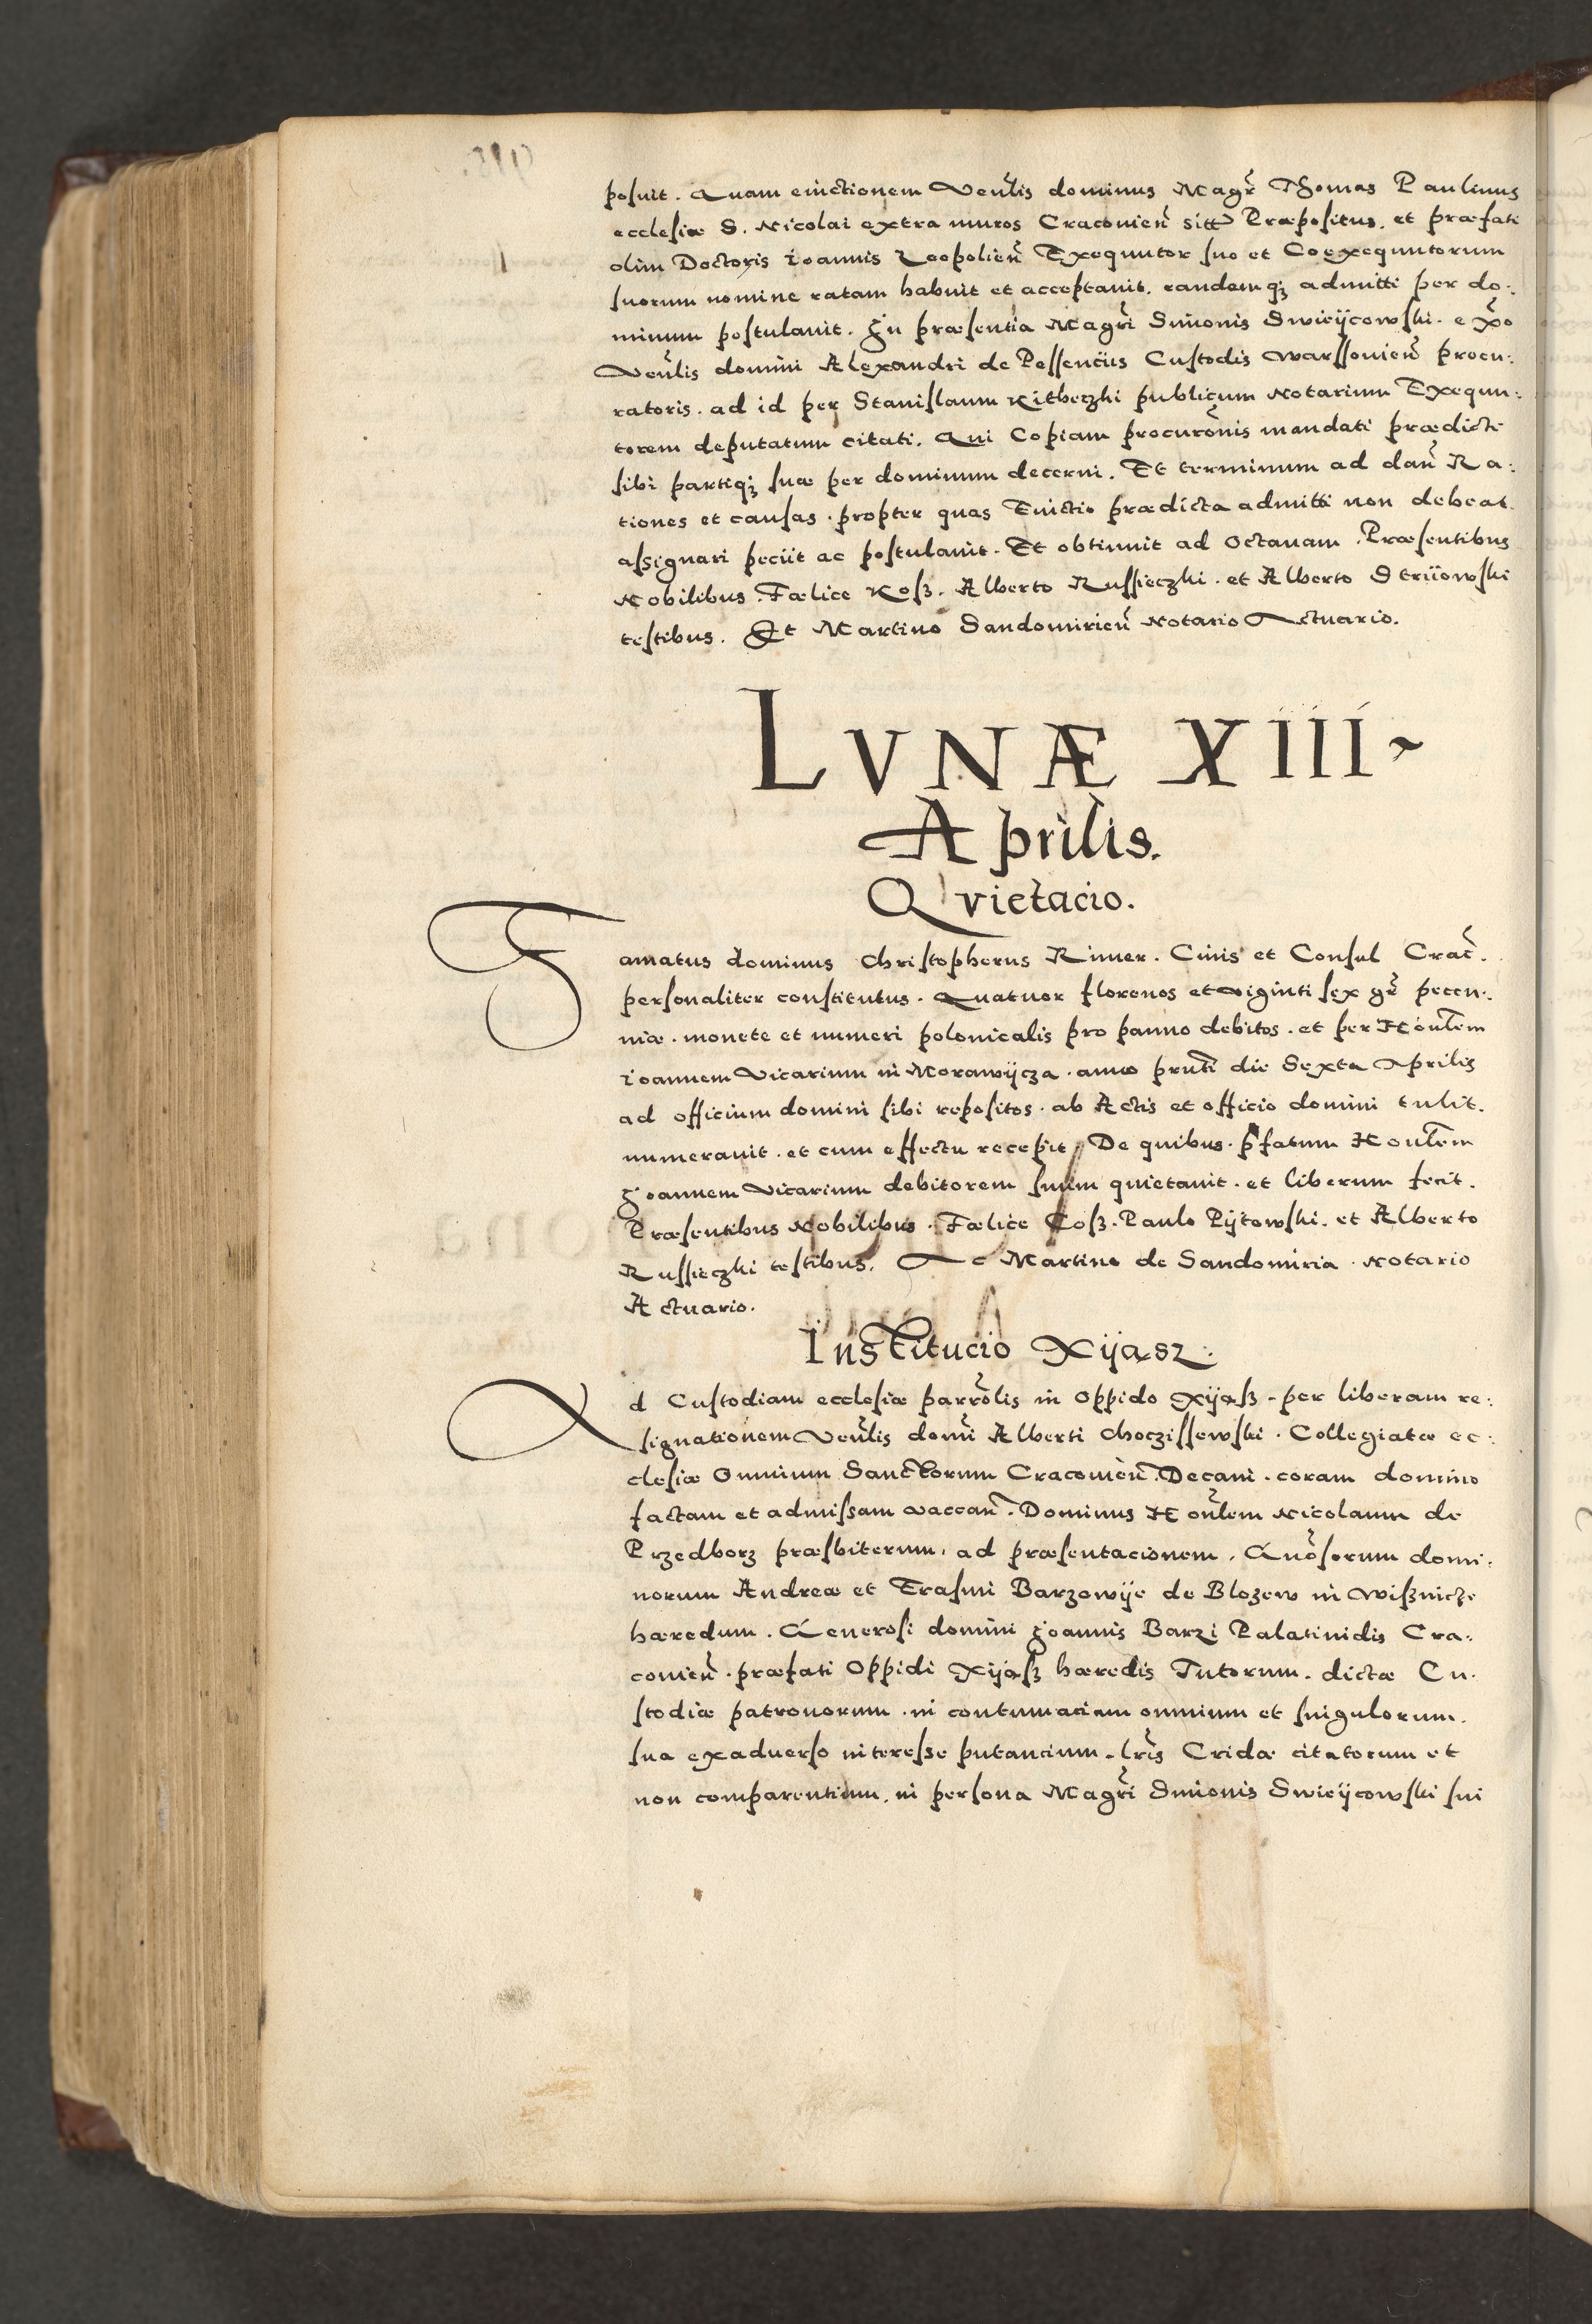 posuit. Quam euictionem Venlis dominus Magr Thomas Paulinus
ecclesiæ S. Nicolai extra muros Cracouien sitt Præpositus. et præfati
olim Doctoris Ioannis Leopolien Exequutor suo et Coexequutorum
suorum nomine ratam habuit et acceptauit. eandemq; admitti per do:
minum postulauit. In præsentia Magri Simonis Swieijcowski. exo
Venlis domini Alexandri de Pessenciis Custodis Warssouien procu:
ratoris. ad id per Stanislaum Kitheczki publicum Notarium Exequu:
torem deputatum citati. Qui Copiam procuronis mandati prædicti
sibi partiq; suæ per dominum decerni. Et terminum ad dan Ra:
tiones et causas. propter quas Euictio prædicta admitti non debeat.
assignari peciit ac postulauit. Et obtinuit ad Octauam. Præsentibus
Nobilibus. Fælice Koß. Alberto Russieczki. et Alberto Striiowski
testibus. Et Martino Sandomirien Notario Actuario.
LVNÆ XIII
Aprilis.
Qvietacio.
Famatus dominus Christophorus Rimer. Ciuis et Consul Crac.
personaliter constitutus. Quatuor florenos et viginti sex gr pecu:
niæ. monete et numeri polonicalis pro panno debitos. et per Honlem
Ioannem Vicarium in Morawijcza. anno prnti die Sexta Aprilis
ad officium domini sibi repositos. ab Actis et officio domini tulit.
numerauit. et cum effectu recepit. De quibus. pfatum Honlem
Ioannem Vicarium debitorem suum quietauit. et liberum fecit.
Præsentibus Nobilibus. Fælice Coß. Paulo Pijtowski. et Alberto
Russieczki testibus. Ac Martino de Sandomiria. Notario
Actuario.
Institucio Xijasz.
Ad Custodiam ecclesiæ parrolis in Oppido Xijaß. per liberam re:
signationem Venlis domi Alberti Choczissewski. Collegiatæ ec:
clesiæ Omnium Sanctorum Cracouien. Decani. coram domino
factam et admissam vaccan. Dominus Honlem Nicolaum de
Przedborz præsbiterum. ad præsentacionem. Gnosorum domi:
norum Andreæ et Erasmi Barzowije de Blozew in Wißnicze
hæredum. Generosi domini Joannis Barzi Palatinidis Cra:
couien. præfati Oppidi Xijaß hæredis Tutorum. dictæ Cu:
stodiæ patronorum. in contumaciam omnium et singulorum.
sua exaduerso interesse putancium. lris Cridæ citatorum et
non comparentium. in persona Magri Simonis Swieijcowski sui